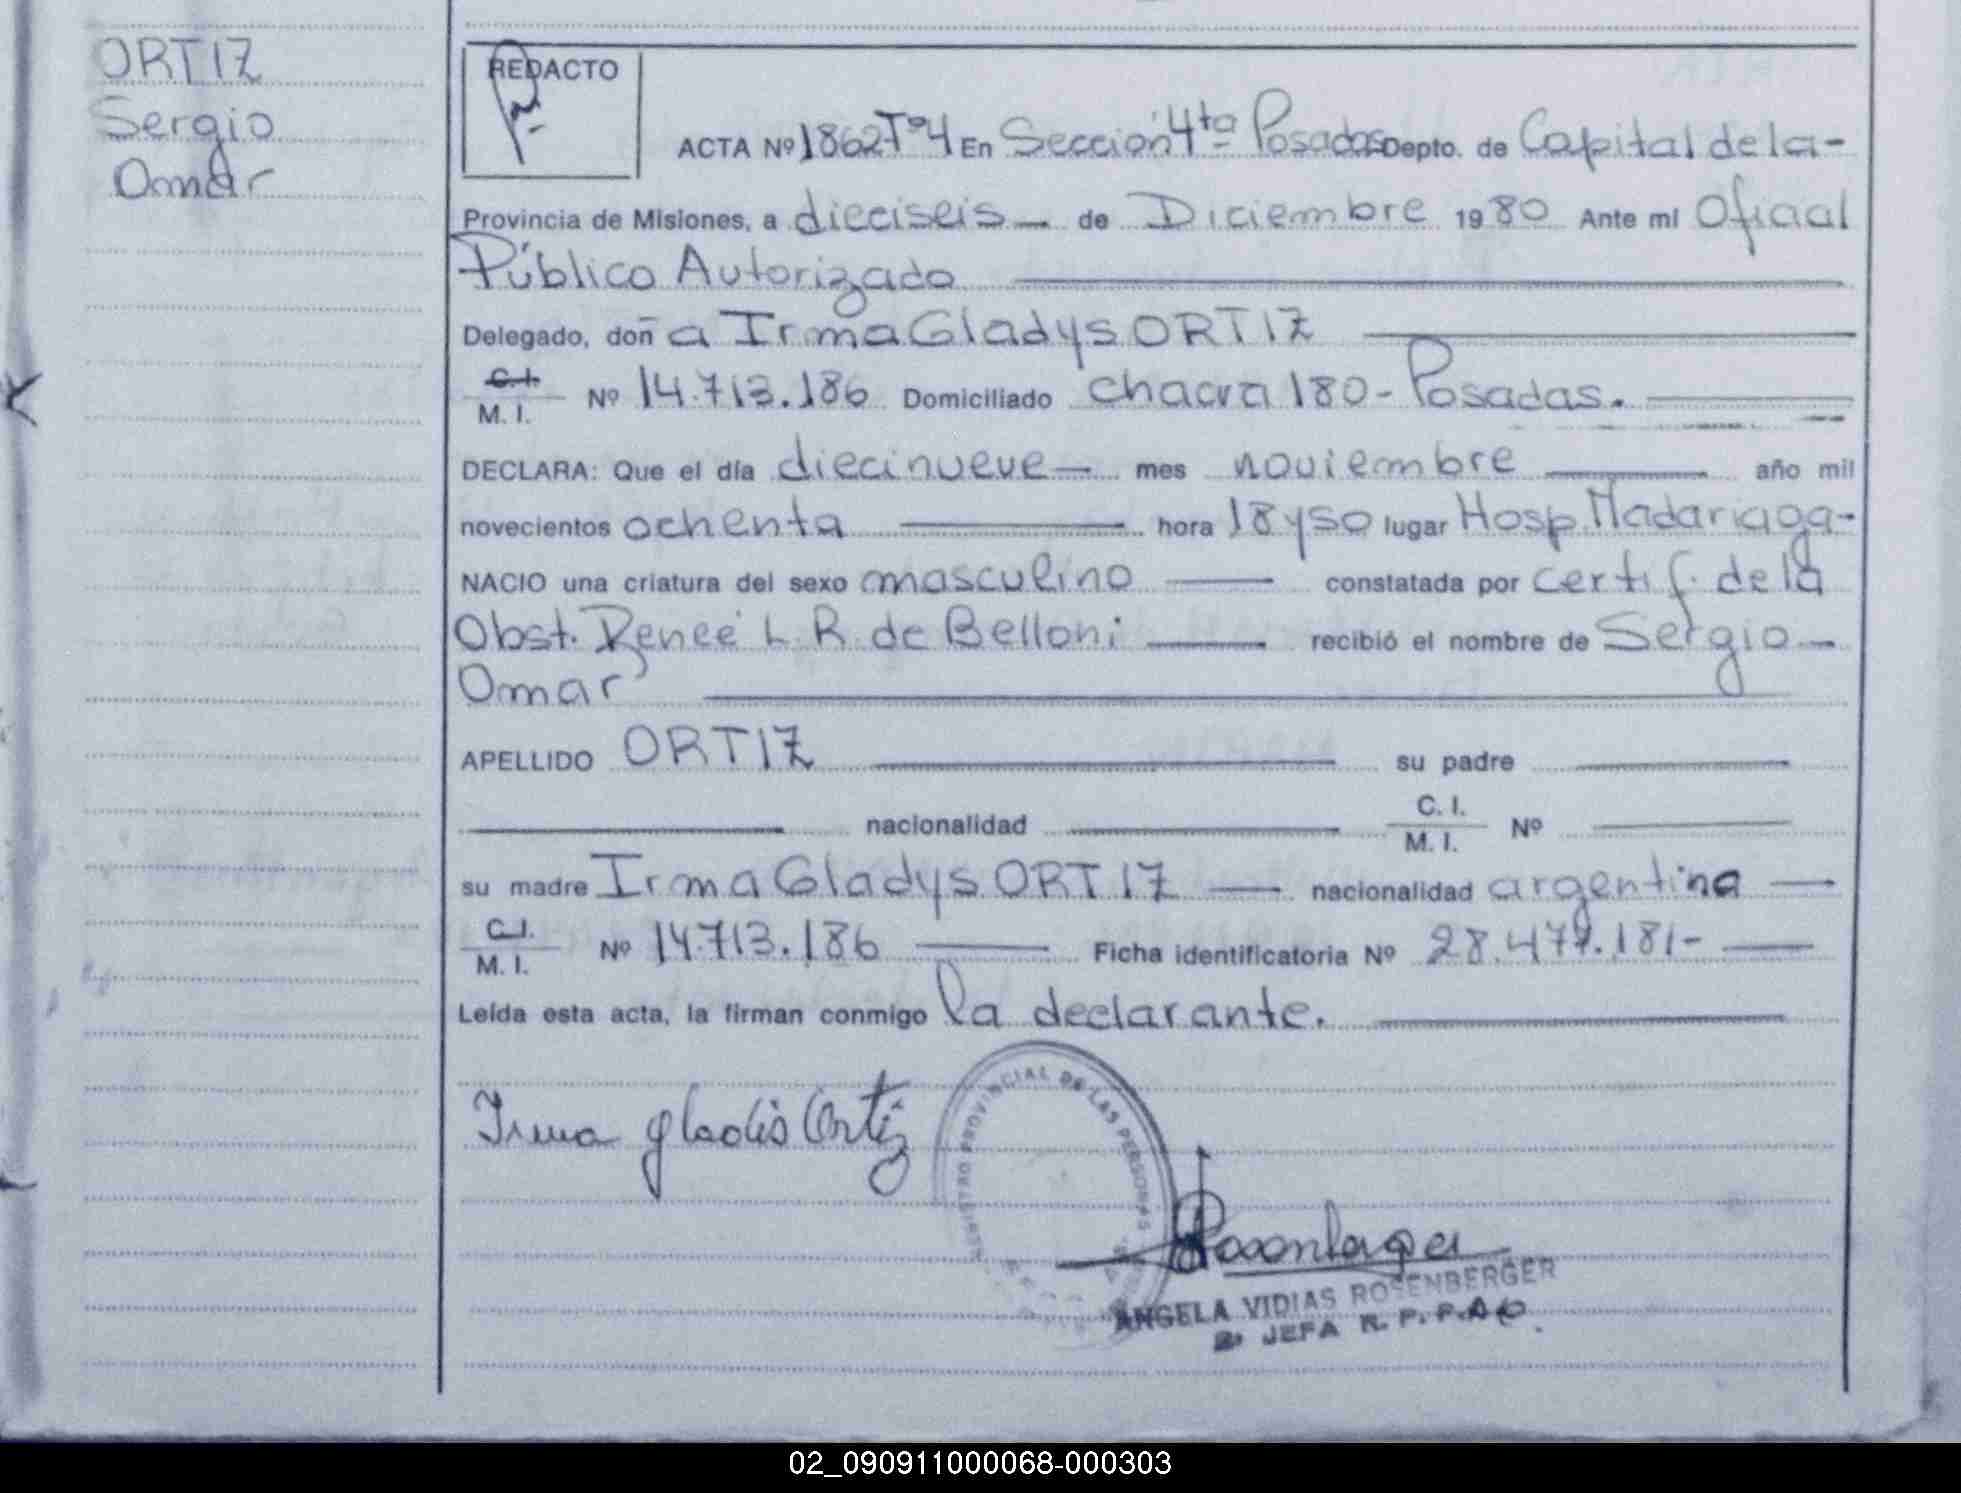 ORTIZ
Sergio
Omar
REDACTO
ACTA Nº 1862 Tº 4 En Sección 4ta Posadas Depto. de Capital de la-
Provincia de Misiones, a dieciseis — de Diciembre 1980 Ante mi Oficial
Público Autorizado
Delegado, doña Irma Gladys ORTIZ
C.I.
M. I. Nº 14.713.186 Domiciliado chacra 180 - Posadas.
DECLARA: Que el día diecinueve — mes noviembre — año mil
novecientos ochenta — hora 18 y 50 lugar Hosp. Madariaga-
NACIO una criatura del sexo masculino — constatada por certif. de la
Obst. Reneé L. R. de Belloni — recibió el nombre de Sergio —
Omar
APELLIDO ORTIZ — su padre —
— nacionalidad — C. I.
M. I. Nº —
su madre Irma Gladys ORTIZ — nacionalidad argentina —
C.I.
M. I. Nº 14.713.186 — Ficha identificatoria Nº 28.477.181- —
Leída esta acta, la firman conmigo la declarante.
Irma gladis Ortiz
REGISTRO PROVINCIAL DE LAS PERSONAS
ANGELA VIDIAS ROSENBERGER
JEFA R. P. P.
02_090911000068-000303